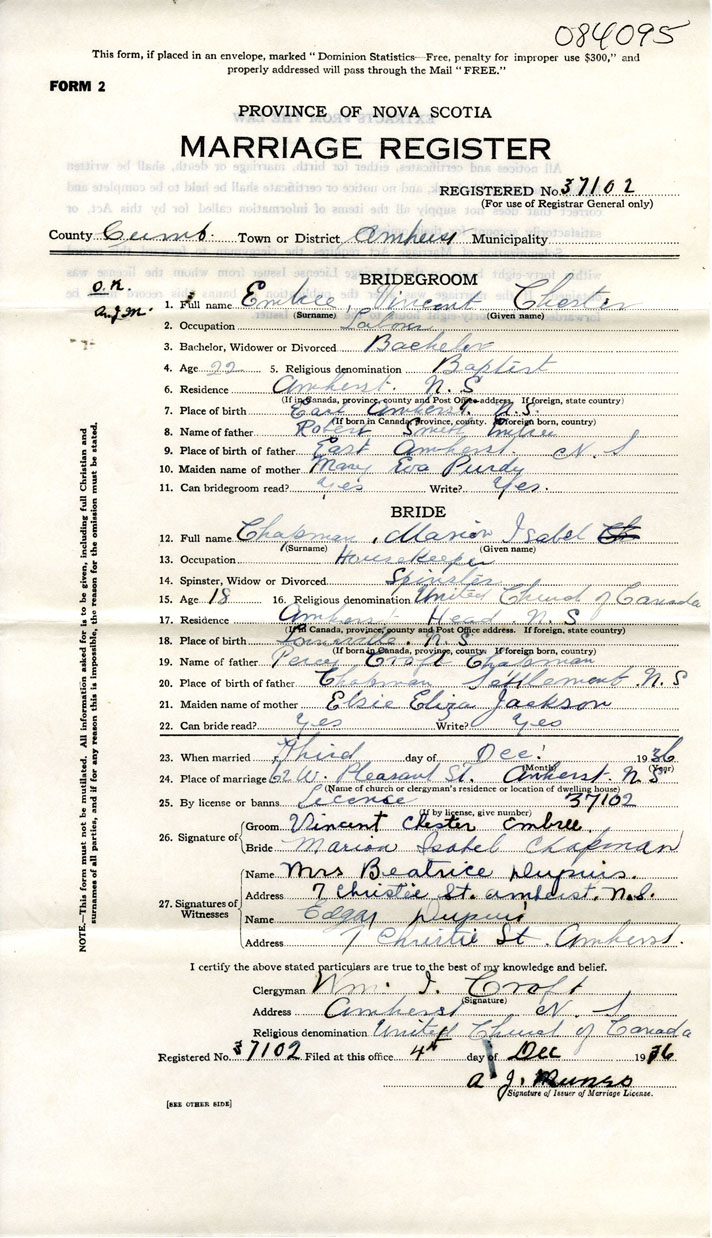 084095
This form, if placed in an envelope, marked "Dominion Statistics—Free, penalty for improper use $300," and
properly addressed will pass through the Mail "FREE."
FORM 2
PROVINCE OF NOVA SCOTIA
MARRIAGE REGISTER
REGISTERED No. 37102
(For use of Registrar General only)
County Cumb. Town or District Amherst Municipality
O.K.
A.J.M.
BRIDEGROOM
1. Full name Embree, Vincent Chester
(Surname) (Given name)
2. Occupation Labour
3. Bachelor, Widower or Divorced Bachelor
4. Age 22 5. Religious denomination Baptist
6. Residence Amherst. N. S
(If in Canada, province, county and Post Office address. If foreign, state country)
7. Place of birth East Amherst. N.S.
(If born in Canada, province, county. If foreign born, country)
8. Name of father Robert Smith Embree
9. Place of father East Amherst. N. S
10. Maiden name of mother Mary Eva Purdy
11. Can bridegroom read? Yes Write? Yes.
BRIDE
12. Full name Chapman, Marion Isabel
(Surname) (Given name)
13. Occupation Housekeeper
14. Spinster, Widow or Divorced Spinster
15. Age 18 16. Religious denomination United Church of Canada
17. Residence Amherst Head. N. S
(If in Canada, province, county and Post Office address. If foreign, state country)
18. Place of birth N. S
(If born in Canada, province, county. If foreign born, country)
19. Name of father Percy Croft Chapman
20. Place of birth of father Chapman Settlement. N. S
21. Maiden name of mother Elsie Eliza Jackson
22. Can bride read? Yes Write? Yes
23. When married Third day of Dec. 1936
(Month) (Year)
24. Place of marriage 62 W. Pleasant St. Amherst. N S
(Name of church or clergyman's residence or location of dwelling house)
25. By license or banns License 37102
(If by license, give number)
26. Signature of Groom Vincent Chester Embree
Bride Marion Isabel Chapman
27. Signatures of Witnesses Name Mrs Beatrice Dupuis.
Address 7 Christie St. Amherst, N.S.
Name Edgar Dupuis
Address 7 Christie St. Amherst.
I certify the above stated particulars are true to the best of my knowledge and belief.
Clergyman Wm. I. Croft
(Signature)
Address Amherst N. S
Religious denomination United Church of Canada
Registered No. 37102 Filed at this office 4th day of Dec 1936
A. J. Munro
Signature of Issuer of Marriage License.
[SEE OTHER SIDE]
NOTE.—This form must not be mutilated. All information asked for is to be given, including full Christian and
surnames of all parties, and if for any reason this is impossible, the reason for the omission must be stated.